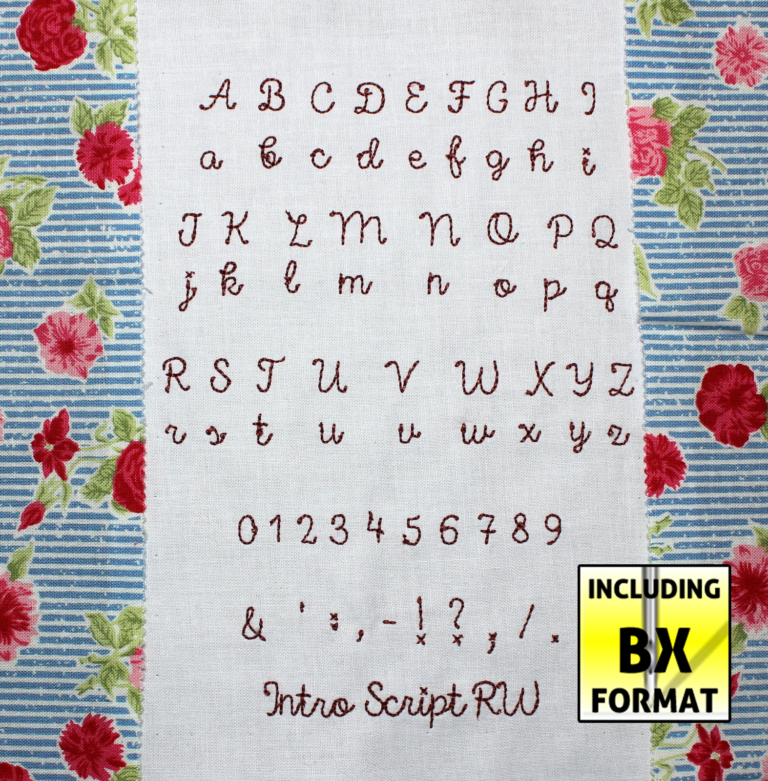 A B C D E F G H I
a b c d e f g h i
J K L M N O P Q
j k l m n o p q
R S T U V W X Y Z
r s t u v w x y z
0 1 2 3 4 5 6 7 8 9
& ' : , - ! ? ; / .
Intro Script RW
INCLUDING
BX
FORMAT